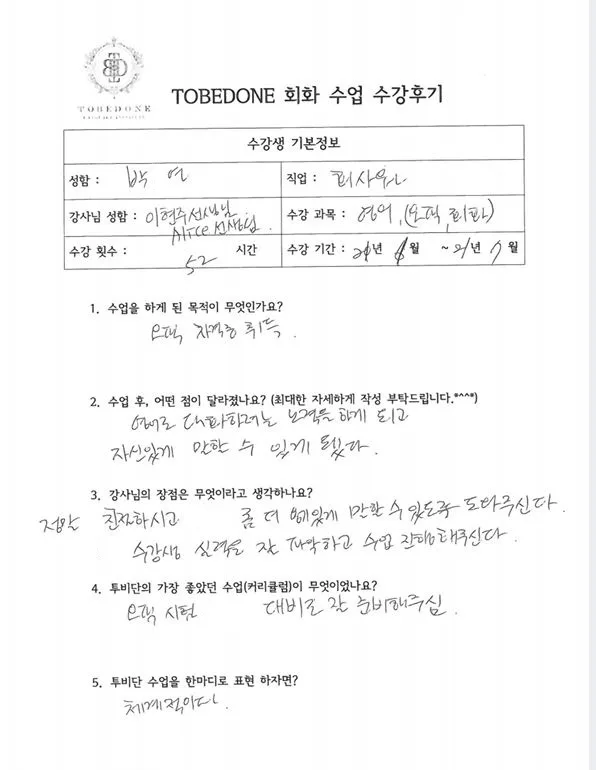 TOBEDONE
TOBEDONE 회화 수업 수강후기
수강생 기본정보
성함 : 박 연 직업 : 회사원
강사님 성함 : 이현주선생님 Alice 선생님. 수강 과목 : 영어, (오픽, 회화)
수강 횟수 : 52 시간 수강 기간 : 21년 6월 ~ 21년 7월
1. 수업을 하게 된 목적이 무엇인가요?
오픽 자격증 취득.
2. 수업 후, 어떤 점이 달라졌나요? (최대한 자세하게 작성 부탁드립니다.*^^*)
영어로 대화하려는 노력을 하게 되고
자신있게 말할 수 있게 됐다.
3. 강사님의 장점은 무엇이라고 생각하나요?
정말 친절하시고 좀 더 재밌게 말할 수 있도록 도와주신다.
수강생 실력을 잘 파악하고 수업 진행해주신다.
4. 투비단의 가장 좋았던 수업(커리큘럼)이 무엇이었나요?
오픽 시험 대비로 잘 준비해주심.
5. 투비단 수업을 한마디로 표현 하자면?
체계적이다.